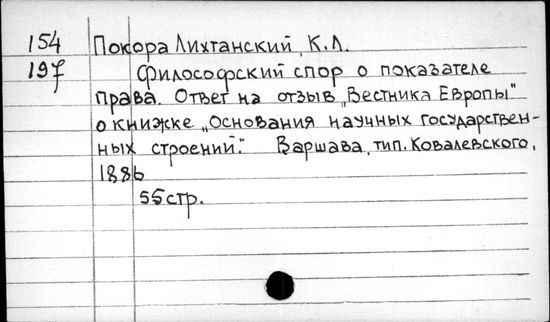 154 Покора Лихтанский, К.Л.
197 Философский спор о показателе
права. Ответ на отзыв „Вестника Европы"
о книжке „Основания научных государствен-
ных строений." Варшава, тип. Ковалевского,
1886
55 стр.